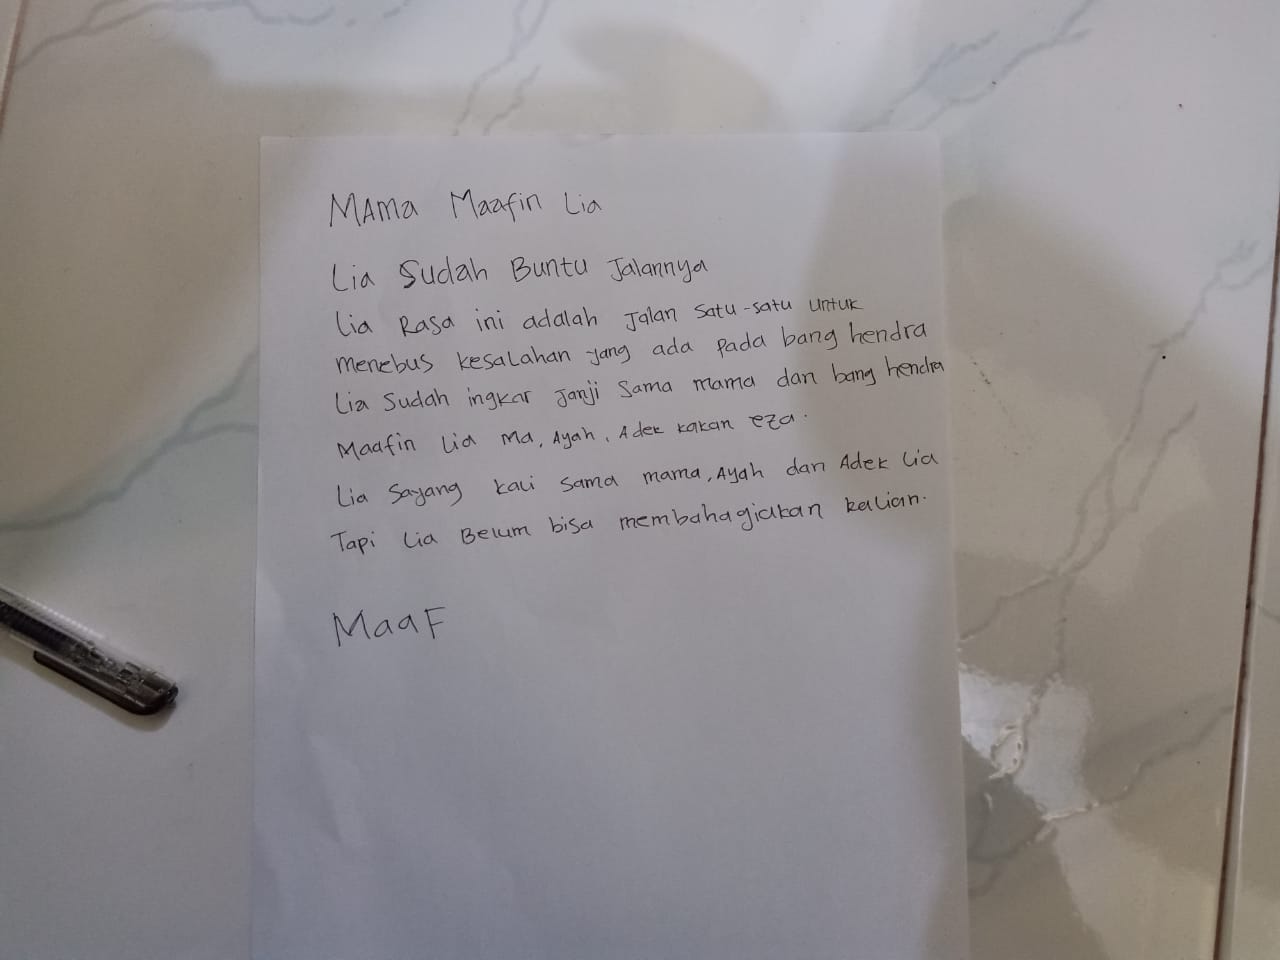 MAMa Maafin Lia
Lia Sudah Buntu Jalannya
Lia Rasa ini adalah Jalan Satu-satu untuk
menebus kesalahan yang ada pada bang hendra
Lia Sudah ingkar Janji Sama mama dan bang hendra
Maafin Lia Ma, Ayah, Adek kakan eza.
Lia Sayang kali sama mama, Ayah dan Adek Lia
Tapi Lia Belum bisa membahagiakan kalian.
MaaF